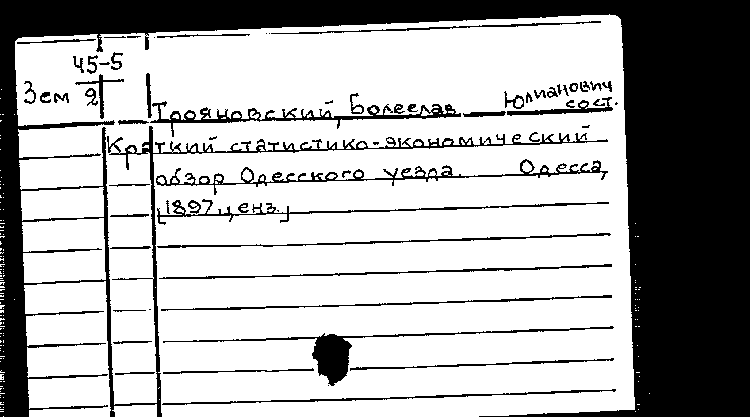 45-5
Зем 2
Трояновский, Болеслав Юлианович сост.
Краткий статистико-экономический
обзор Одесского уезда. Одесса,
[1897, ценз.]